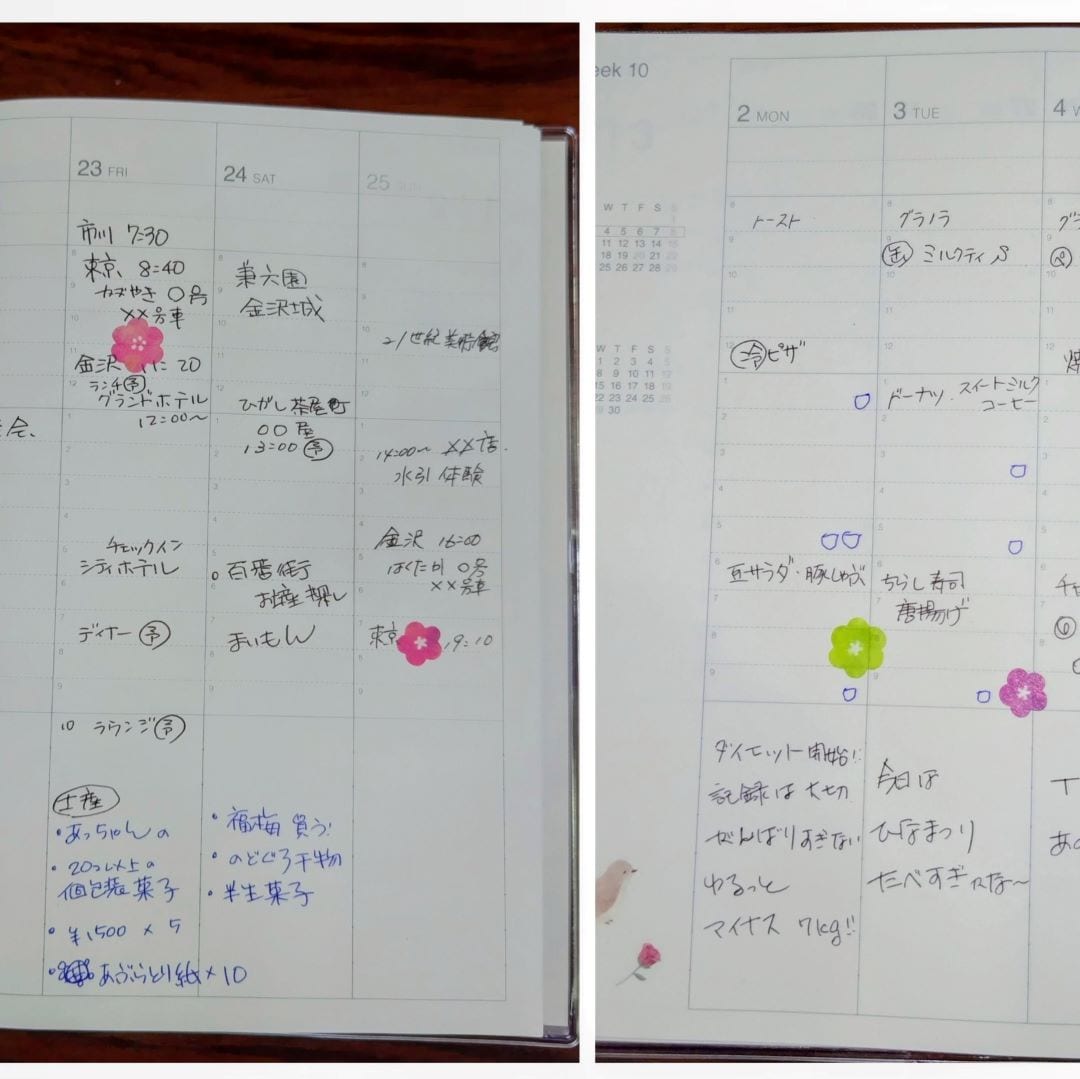 23 FRI
市川 7:30
東京 8:40
かがやき 〇号
××号車
金沢 11:20
ランチ予
グランドホテル
12:00〜
チェックイン
シティホテル
ディナー 予
10 ラウンジ予
土産
・あっちゃんの
・20コ以上の
個包装菓子
・¥1,500 × 5
あぶらとり紙×10
24 SAT
兼六園
金沢城
ひがし茶屋町
〇〇屋
13:00 予
百番街
お土産探し
まいもん
・福梅 買う!
・のどぐろ干物
・半生菓子
25 SUN
21世紀美術館
14:00〜 ××店.
水引体験
金沢 16:00
はくたか 〇号
××号車
東京 19:10
会、
eek 10
W T F S S
1
4 5 6 7 8
11 12 13 14 15
18 19 20 21 22
25 26 27 28 29
W T F S S
1 2 3 4 5
8 9 10 11 12
15 16 17 18 19
22 23 24 25 26
29 30
2 MON
トースト
冷ピザ
豆サラダ・豚しゃぶ
ダイエット開始!!
記録は大切
がんばりすぎない
ゆるっと
マイナス 7kg!!
3 TUE
グラノラ
缶 ミルクティS
ドーナツ・スイートミルク
コーヒー
ちらし寿司
唐揚げ
今日は
ひなまつり
たべすぎたな〜
4
グラ